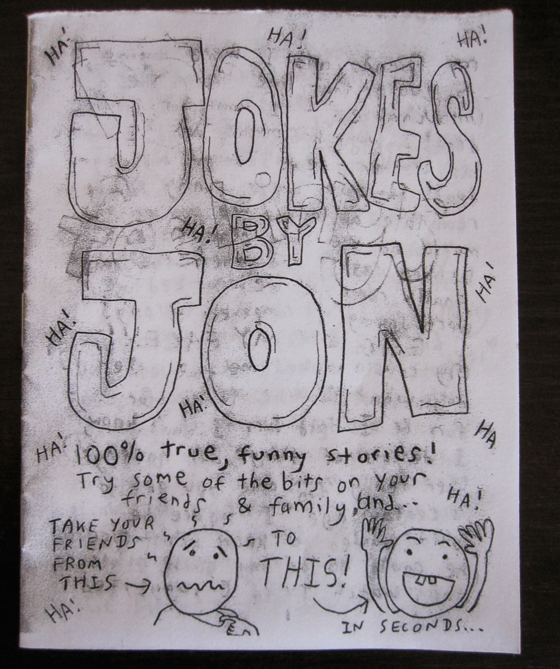 HA!
HA!
HA!
JOKES
HA!
BY
JON
HA!
HA!
HA!
HA
HA!
100% true, funny stories!
Try some of the bits on your
friends & family, and...
HA!
TAKE YOUR
FRIENDS
FROM
THIS
TO
THIS!
HA!
IN SECONDS...